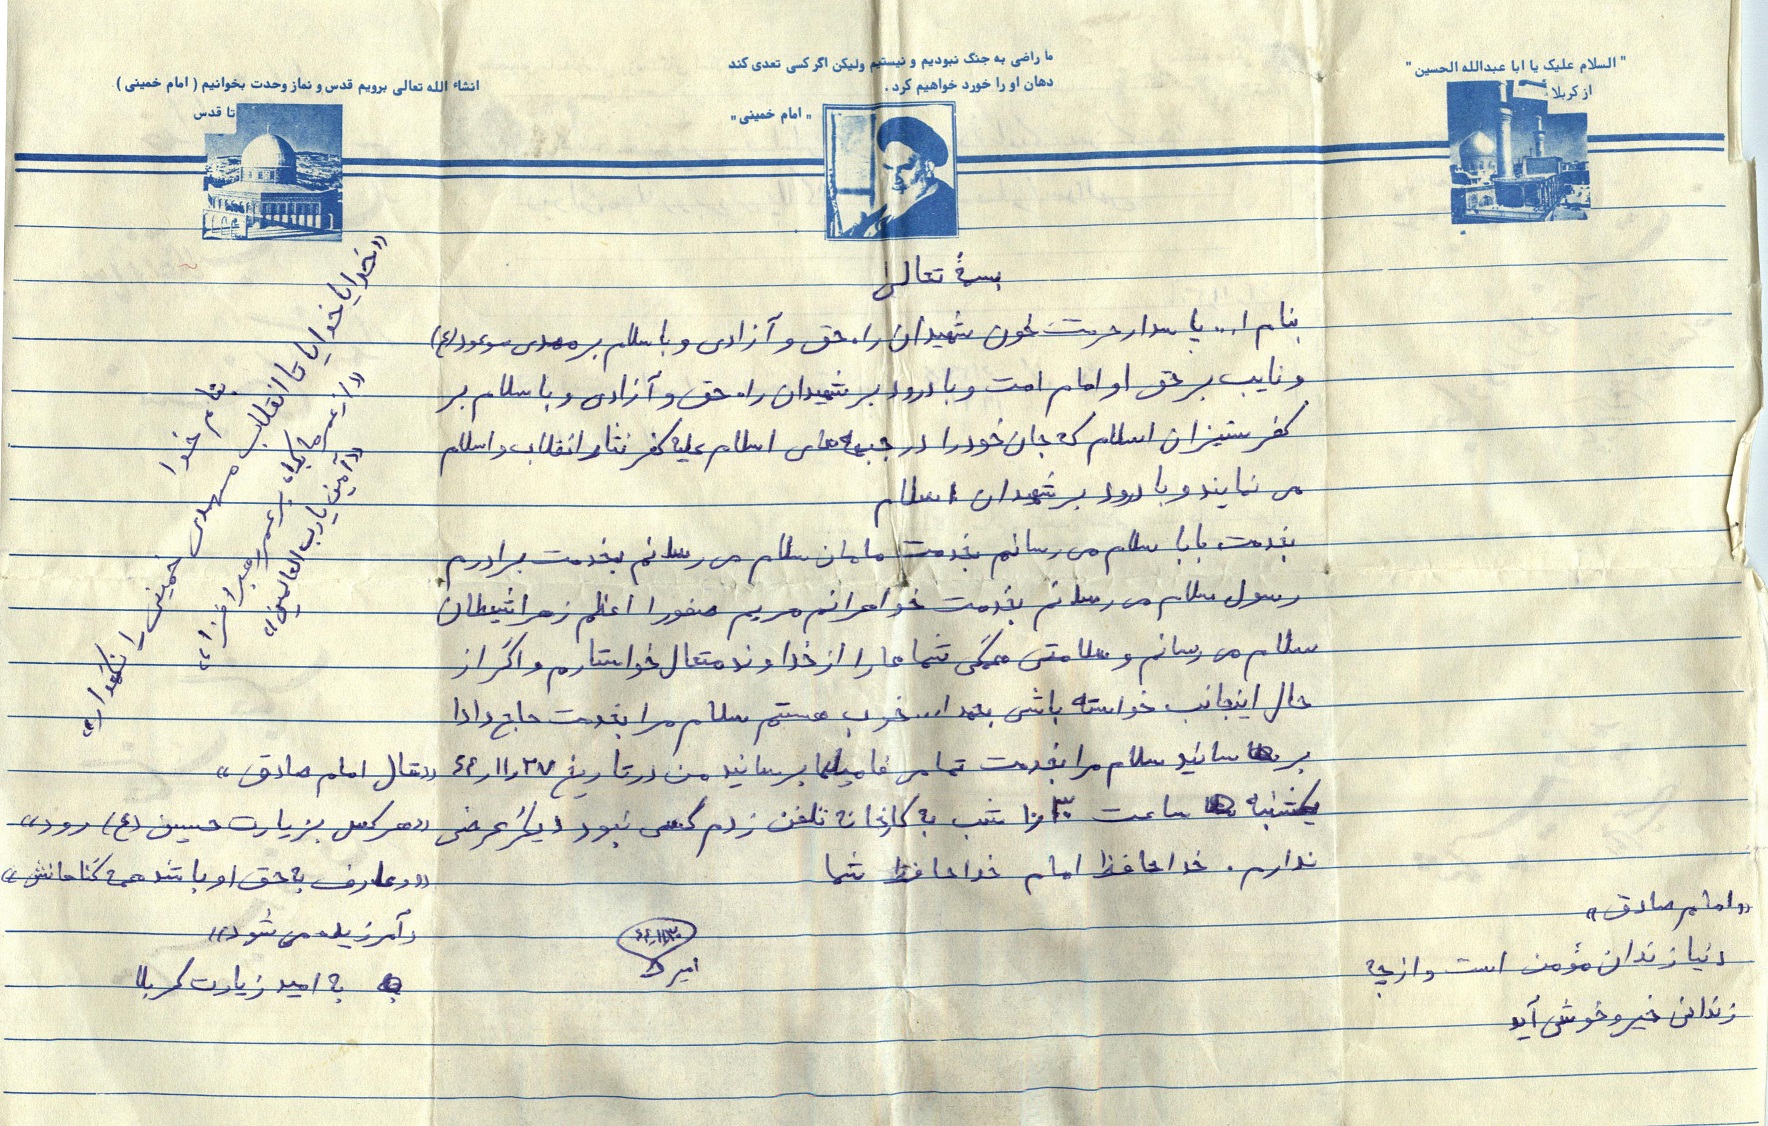 " السلام علیک یا ابا عبدالله الحسین "
از کربلا
ما راضی به جنگ نبودیم و نیستیم ولیکن اگر کسی تعدی کند
دهان او را خورد خواهیم کرد .
" امام خمینی "
انشاء الله تعالی برویم قدس و نماز وحدت بخوانیم ( امام خمینی )
تا قدس
بسمه تعالی
بنام ا... پاسدار حرمت خون شهیدان راه حق و آزادی و با سلام بر مهدی موعود (ع)
و نایب بر حق او امام امت و با درود بر شهیدان راه حق و آزادی و با سلام بر
کفر ستیزان اسلام که جان خود را در جبهه های اسلام علیه کفر نثار انقلاب و اسلام
می نمایند و با درود بر شهیدان اسلام
بخدمت بابا سلام می رسانم بخدمت مامان سلام می رسانم بخدمت برادرم
رسول سلام می رسانم بخدمت خواهرانم مریم صغورا اعظم زهرا شیطان
سلام می رسانم و سلامتی همگی شماها را از خداوند متعال خواستارم و اگر از
حال اینجانب خواسته باشی بحمد ا... خوب هستم سلام مرا بخدمت حاج دادا
بر سانید سلام مرا بخدمت تمامی فامیلها برسانید من در تاریخ ۶۴٫۱۱٫۲۷
یکشنبه ساعت ۱۰٫۳۰ شب به کارخانه تلفن زدم کسی نبود دیگر عرضی
ندارم . خداحافظ امام خداحافظ شما
۶۴٫۱۱٫۳۰
امیر
بنام خدا
«خدایا خدایا تا انقلاب مهدی خمینی را نگهدار»
«از عمر ما بکاه بر عمر رهبر افزا»
«آمین یا رب العالمین»
«قال امام صادق»
«هر کس بزیارت حسین (ع) رود»
«و عارف به حق او باشد همه گناهانش»
«آمرزیده می شود»
به امید زیارت کربلا
«امام صادق»
دنیا زندان مؤمن است و از چه
زندانی خیر و خوشی آید